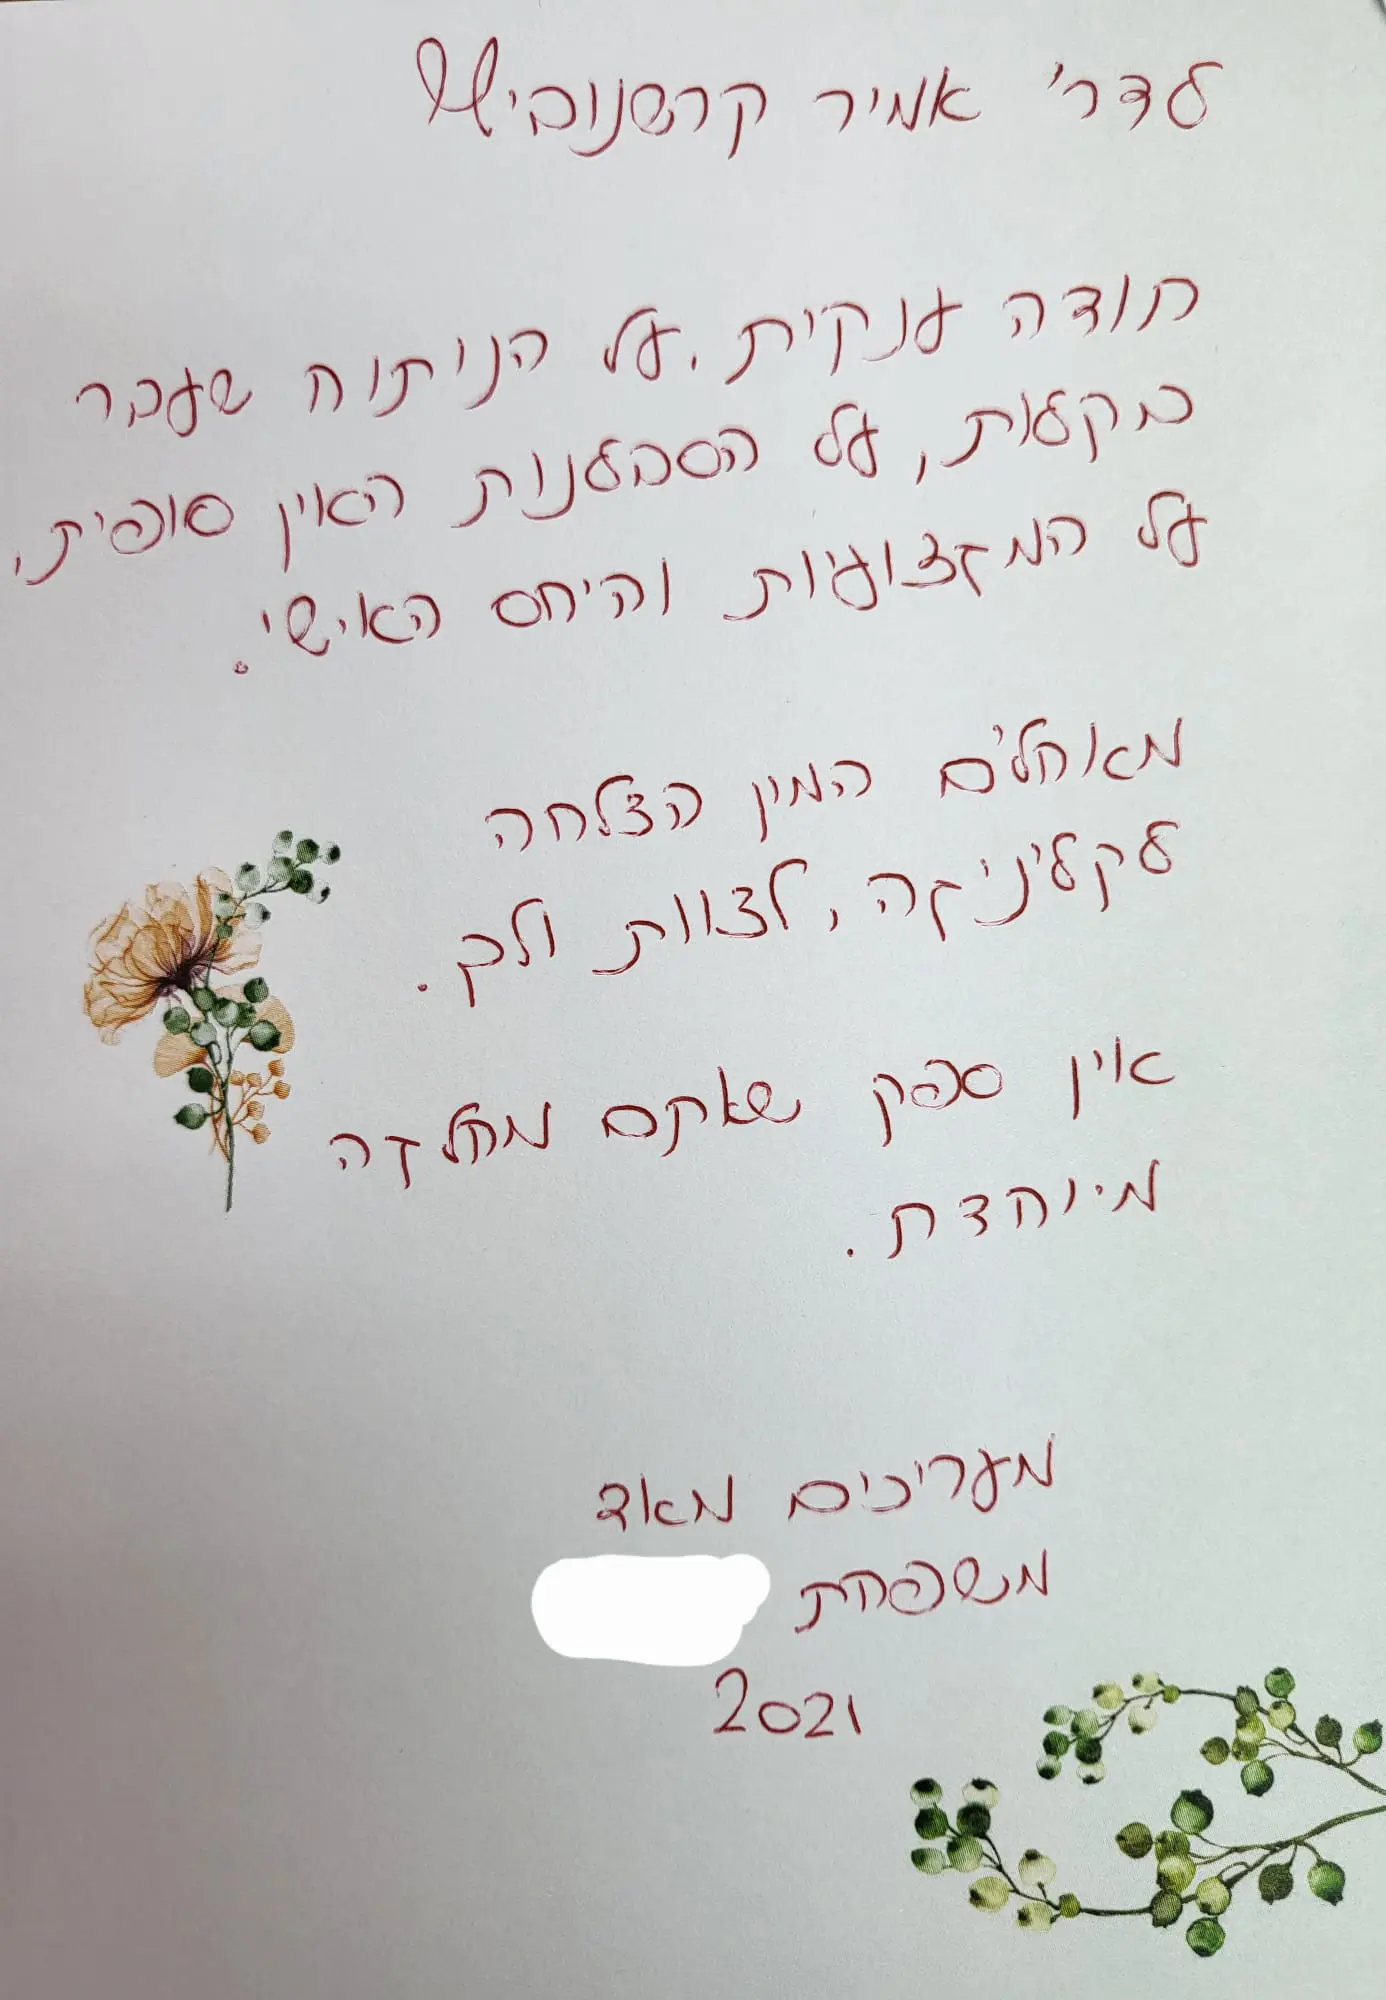 לדר' אמיר קרשנוביץ
תודה ענקית, על הניתוח שעבר
בקלות, על הסבלנות האין סופית,
על המקצועיות והיחס האישי.
מאוחלים המון הצלחה
לקליניקה, לצוות ולך.
אין ספק שאתם מחלקה
מיוחדת.
מעריכים מאד
משפחת
2021